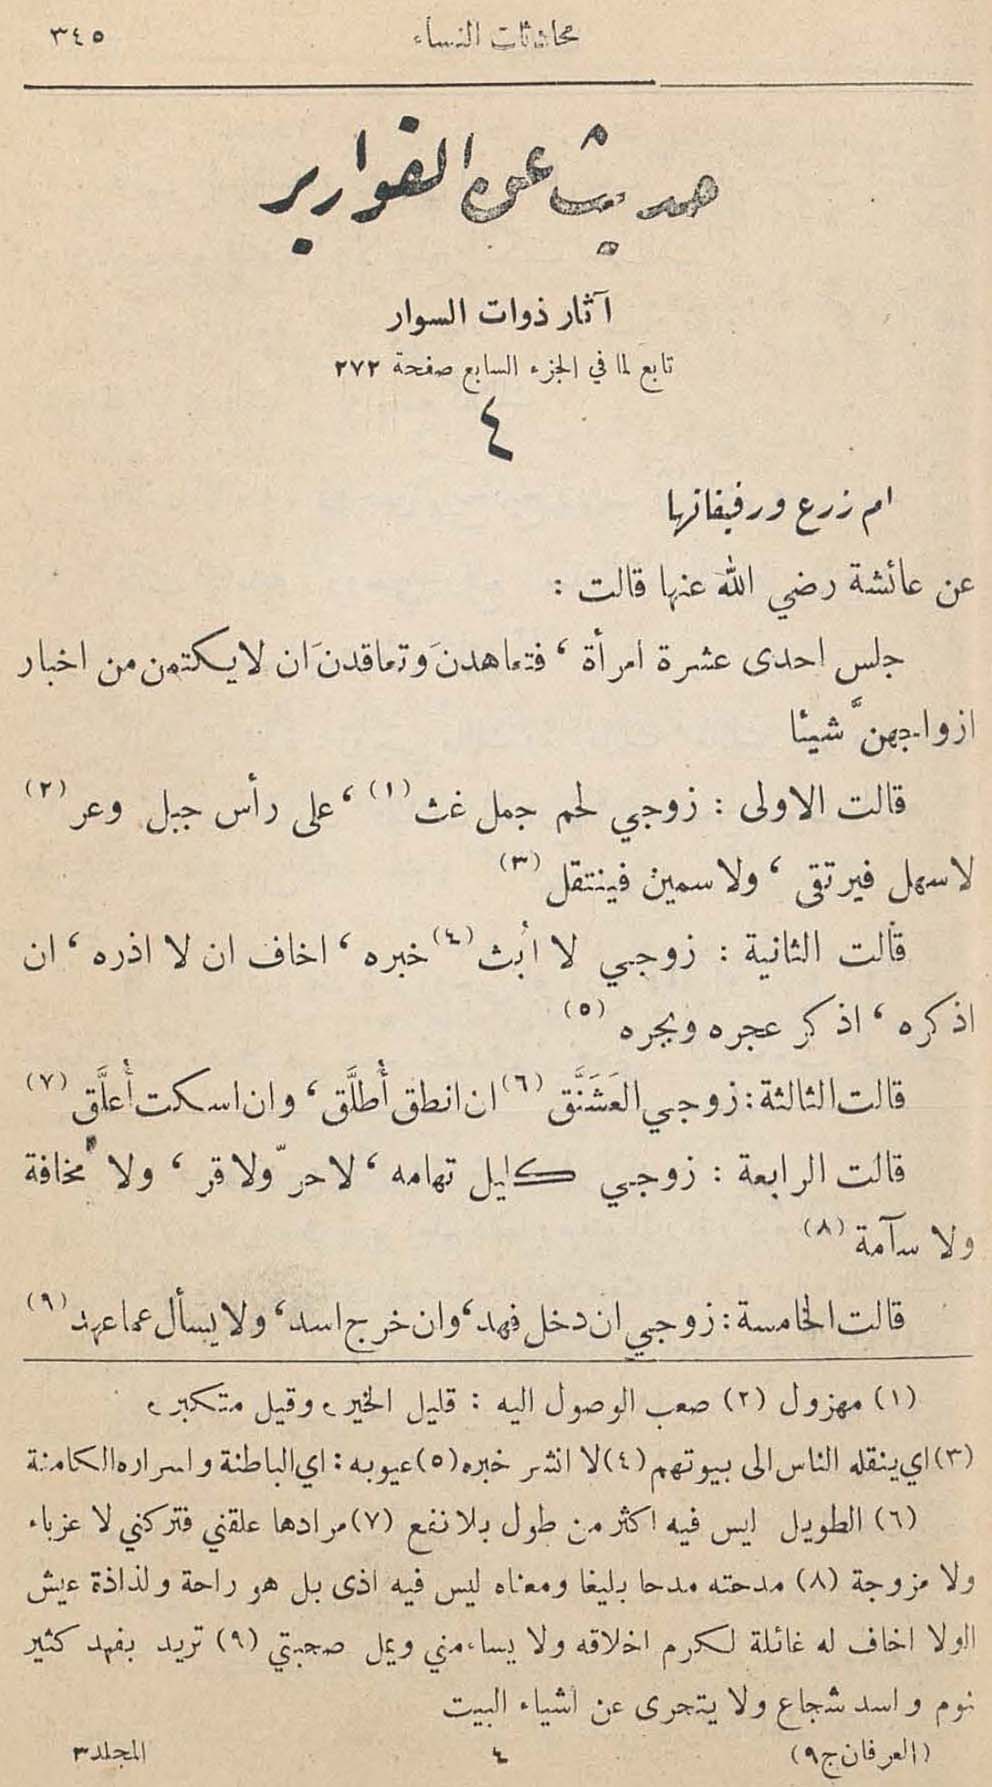 محادثات النساء ٣٤٥
حديث عن القوارير
آثار ذوات السوار
تابع لما في الجزء السابع صفحة ٢٧٢
٤
ام زرع ورفيقاتها
عن عائشة رضي الله عنها قالت :
جلس احدى عشرة امرأة ، فتعاهدنَ وتعاقدنَ ان لا يكتمن من اخبار
ازواجهنَّ شيئا
قالت الاولى : زوجي لحم جمل غث (١) ، على رأس جبل وعر (٢)
لا سهل فيرتقى ، ولا سمين فينتقل (٣)
قالت الثانية : زوجي لا أبث (٤) خبره ، اخاف ان لا اذره ، ان
اذكره ، اذكر عجره وبجره (٥)
قالت الثالثة : زوجي العَشَنَّق (٦) ان انطق أُطلَّق ، وان اسكت أُعلَّق (٧)
قالت الرابعة : زوجي كليل تهامه ، لا حرّ ولا قر ، ولا مخافة
ولا سآمة (٨)
قالت الخامسة : زوجي ان دخل فهد ، وان خرج اسد ، ولا يسأل عما عهد (٩)
(١) مهزول (٢) صعب الوصول اليه : قليل الخير ، وقيل متكبر ،
(٣) اي ينقله الناس الى بيوتهم (٤) لا انشر خبره (٥) عيوبه : اي الباطنة واسراره الكامنة
(٦) الطويل ليس فيه اكثر من طول بلا نفع (٧) مرادها علقني فتركني لا عزباء
ولا مزوجة (٨) مدحته مدحا بليغا ومعناه ليس فيه اذى بل هو راحة ولذاذة عيش
الولا اخاف له غائلة لكرم اخلاقه ولا يساءمني ويمل صحبتي (٩) تريد بفهد كثير
نوم واسد شجاع ولا يتحرى عن اشياء البيت
(العرفان ج٩) ٤ المجلد٣